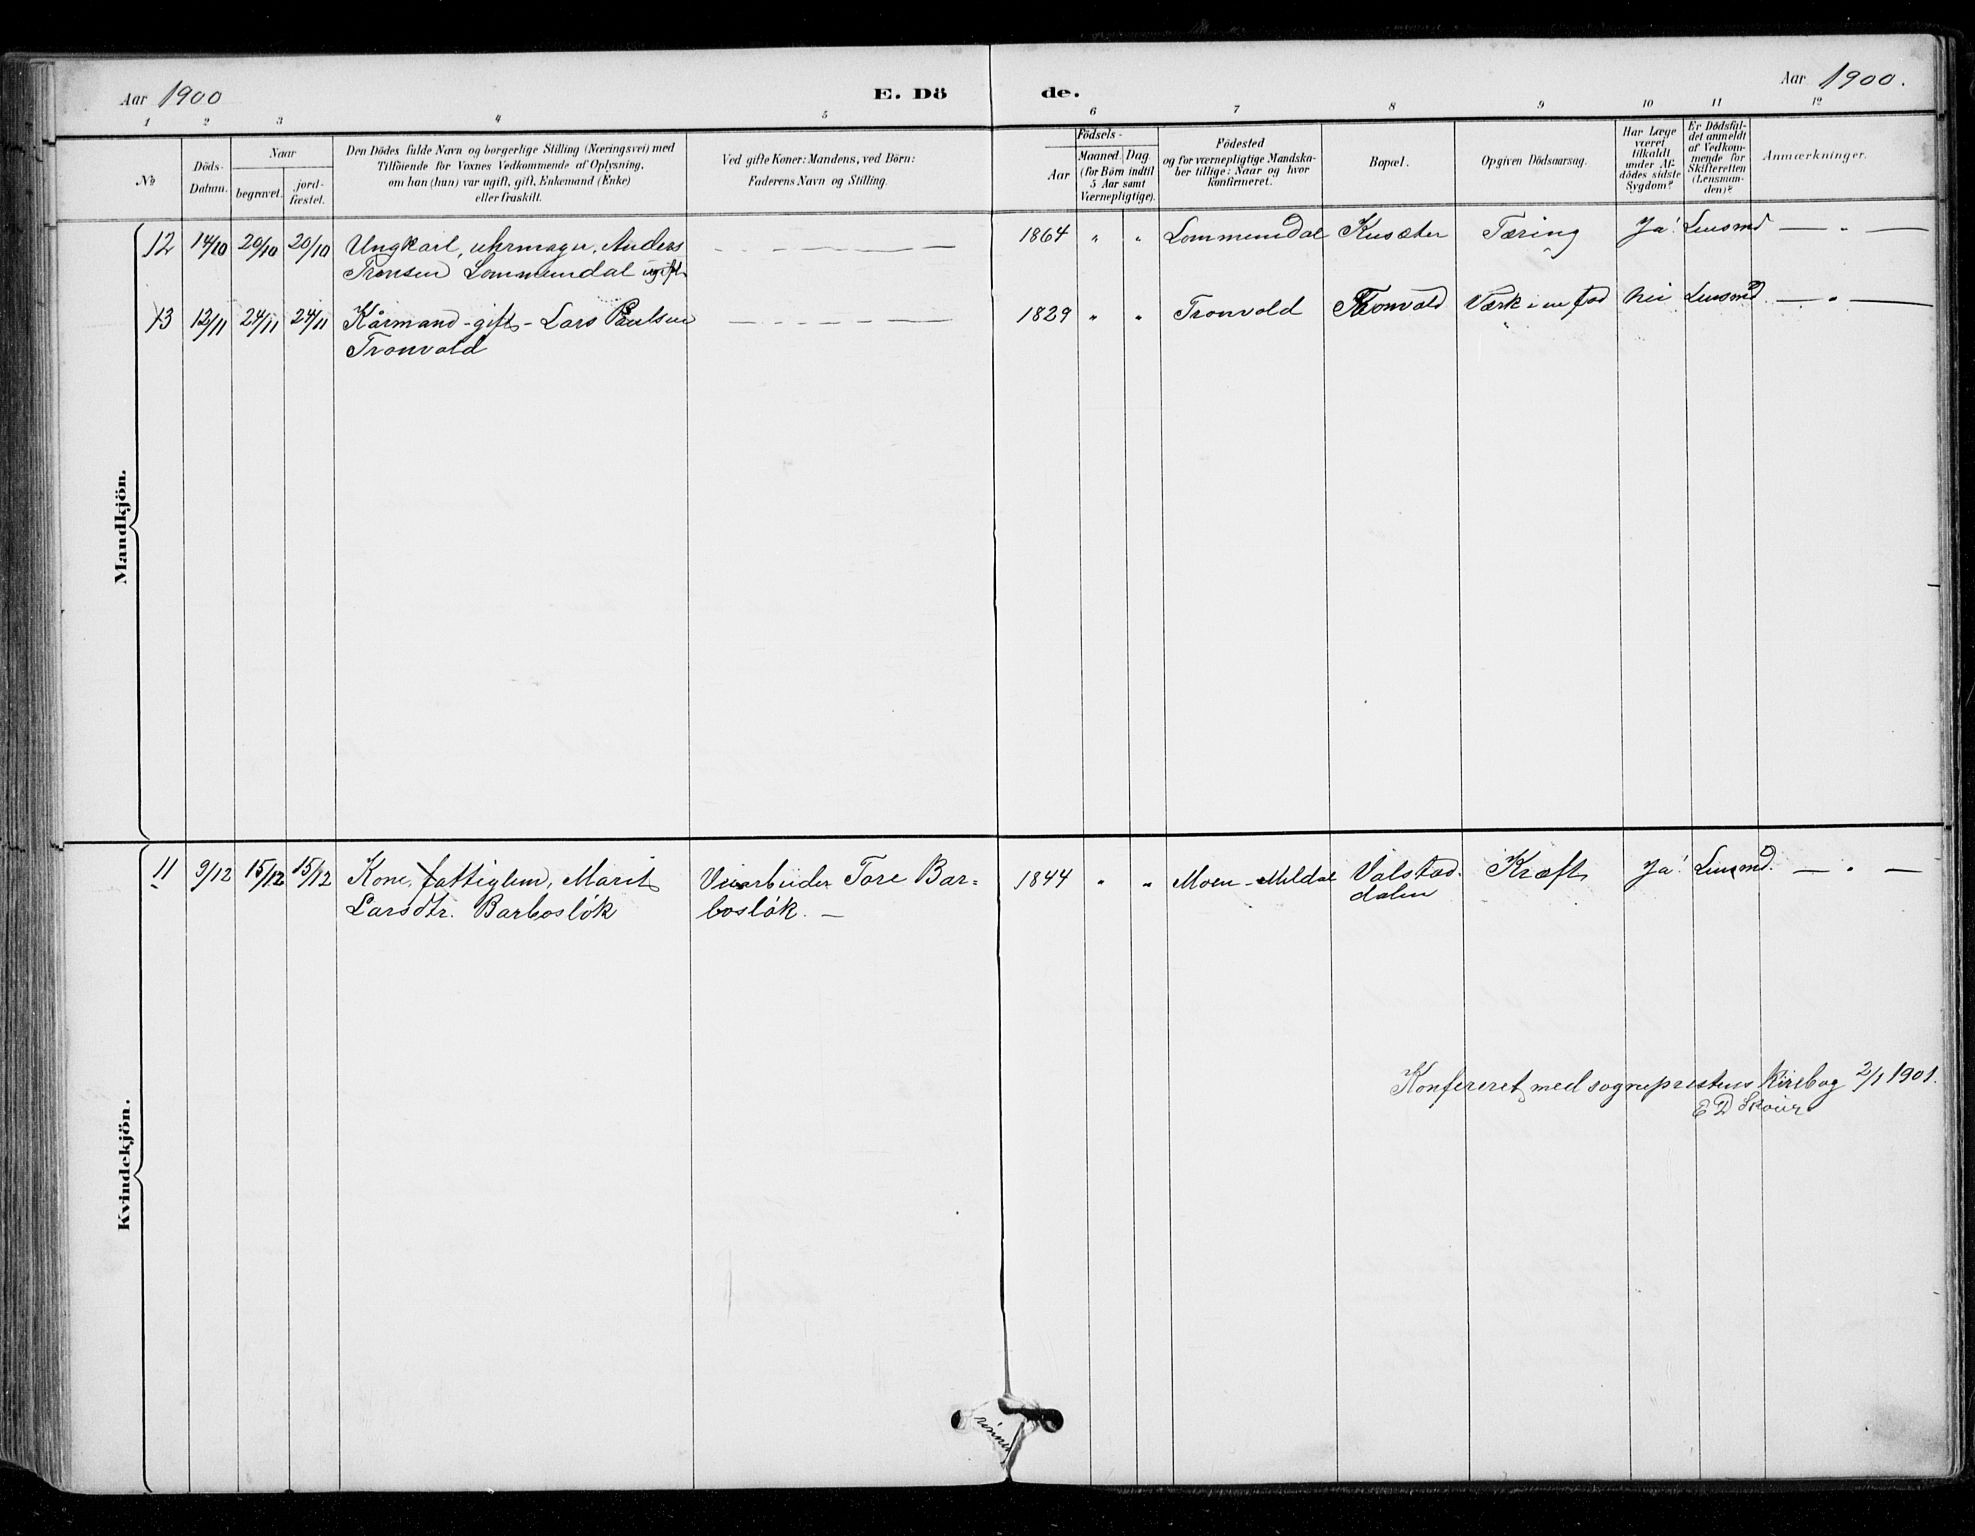 Aar 1900
E. Dö
de.
Aar 1900.
1 2 3 4 5 6 7 8 9 10 11 12
№
Döds-
Datum.
Naar
begravet.
jord-
fæstet.
Den Dödes fulde Navn og borgerlige Stilling (Næringsvei) med
Tilföiende for Voxnes Vedkommende af Oplysning,
om han (hun) var ugift, gift, Enkemand (Enke)
eller fraskilt.
Ved gifte Koner: Mandens, ved Börn:
Faderens Navn og Stilling.
Födsels-
Aar
Maaned. Dag
(for Börn indtil
5 Aar samt
Værnepligtige).
Födested
og for værnepligtige Mandska-
ber tillige: Naar og hvor
konfirmeret.
Bopæl.
Opgiven Dödsaarsag.
Har Læge
været
tilkaldt
under Af-
dödes sidste
Sygdom?
Er Dödsfal-
det anmeldt
af Vedkom-
mende for
Skifteretten
(Lensman-
den)?
Anmærkninger.
Mandkjön.
12 14/10 20/10 20/10 Ungkarl, uhrmager, Anders — — — 1864 " " Lommundal Kusæter Tæring Ja! Lensmd — " —
Tronsen Lommundal ugift
13 12/11 24/11 24/11 Kårmand - gift - Lars Paulsen — — — 1829 " " Tronvold Tronvold Værk i en fod Nei Lensmd. — " —
Tronvold
Kvindekjön.
11 9/12 15/12 15/12 Kone, fattiglem, Marit Veiarbeider Tore Bar= 1844 " " Moen - Meldal Valstad- Kræft Ja! Lensmd. — " —
Larsdtr. Barbosløk bosløk. — dalen
Konfereret med sogneprestens kirebog 2/1 1901.
E D Skour